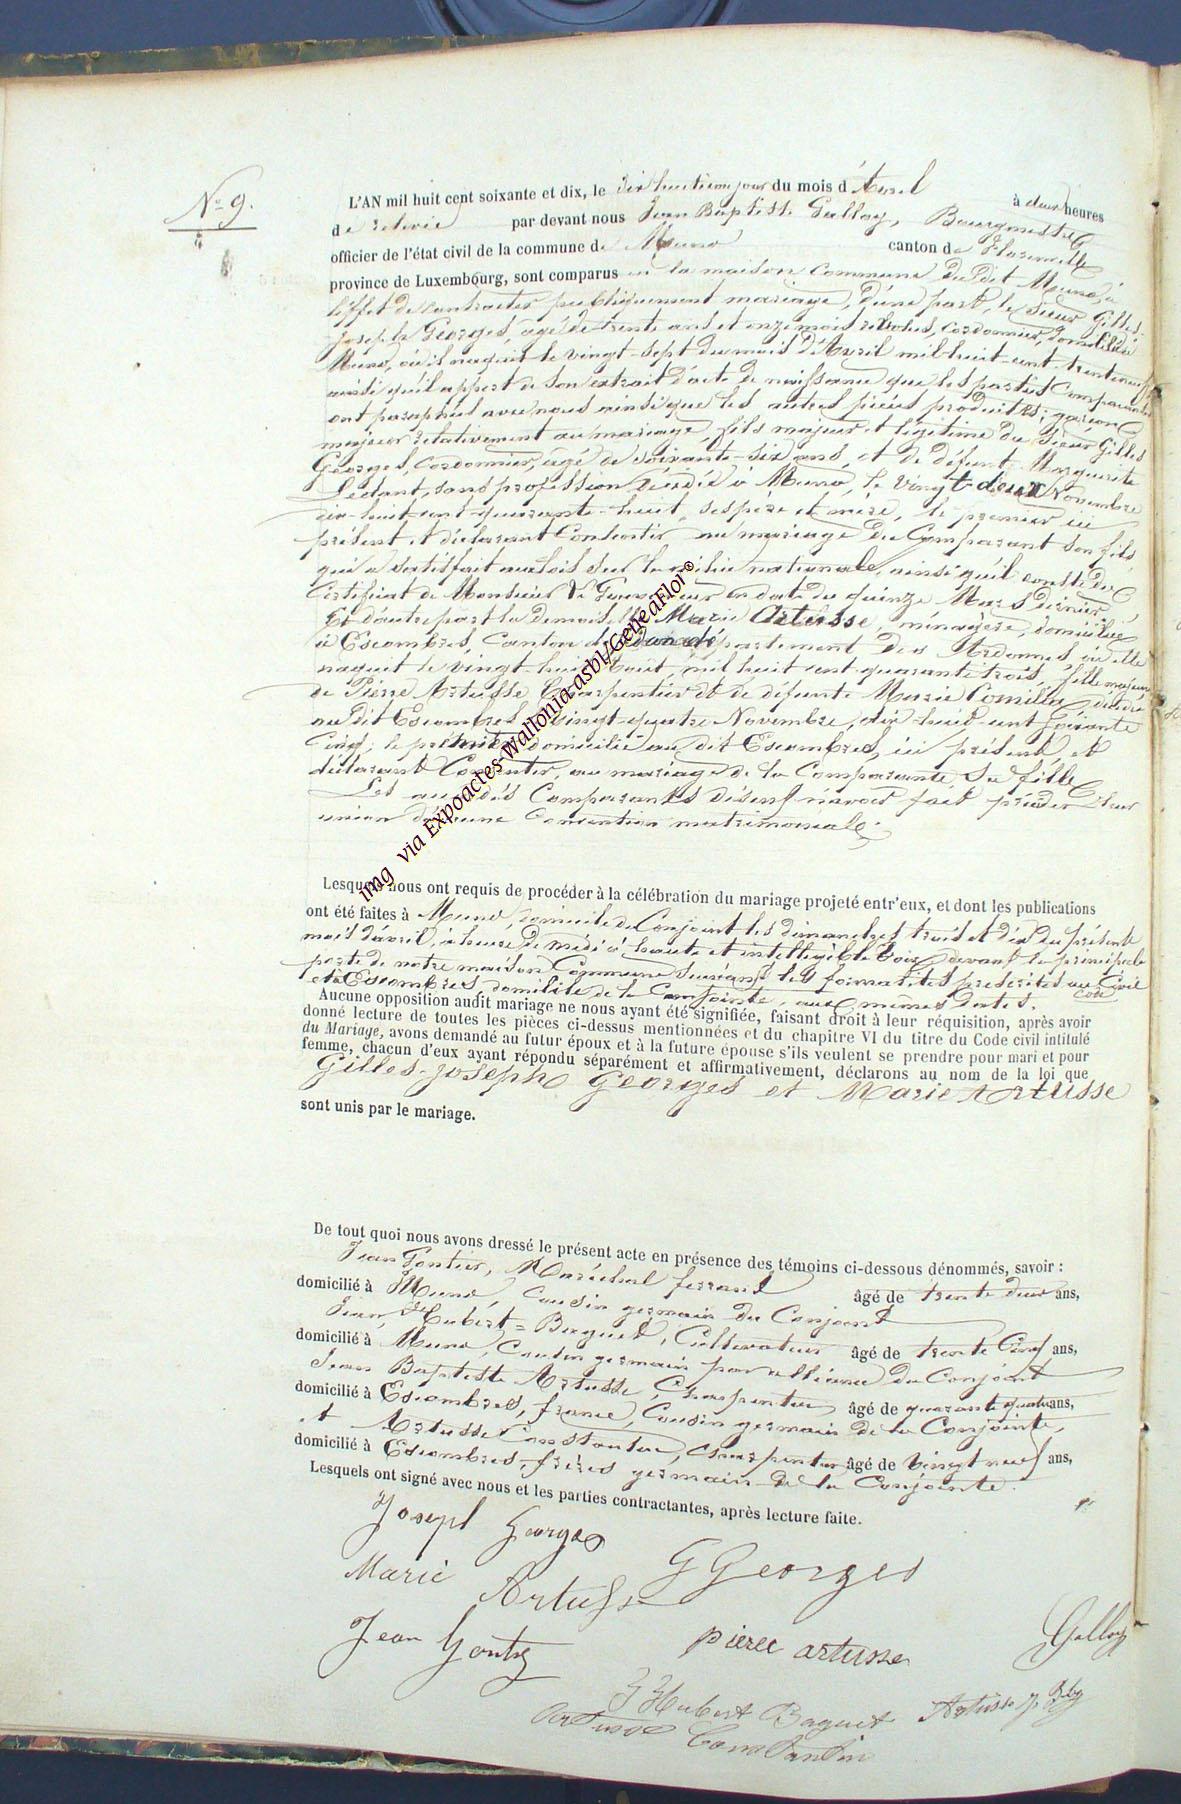 N° 9.
L'AN mil huit cent soixante et dix, le dix huitième jour du mois d'Avril à deux heures
de relevée par devant nous Jean Baptiste Galloy, Bourgmestre
officier de l'état civil de la commune de Muno canton de Florenville
province de Luxembourg, sont comparus en la maison Commune du dit Muno, à
l'effet de contracter publiquement mariage, d'une part, le Sieur Gilles-
Joseph Georges, agé de trente ans et onze mois révolus, Cordonnier, domicilié à
Muno, où il naquit le vingt-sept du mois d'Avril mil huit-cent-trente neuf
ainsi qu'il appert de son extrait d'acte de naissance que les parties Comparantes
ont paraphés avec nous ainsi que les autres pièces produites; garçon
majeur relativement au mariage, fils majeur et légitime du Sieur Gilles
Georges, Cordonnier, agé de soixante-six ans, et de défunte Marguerite
Lédant, sans profession décédée à Muno, le vingt-deux Novembre
dix-huit-cent-quarante-huit, ses père et mère, le premier ici
présent et déclarant Consentir au mariage du Comparant son fils
qui a satisfait aux lois sur la milice nationale, ainsi qu'il conste du
Certificat de Monsieur le Gouverneur en date du quinze Mars dernier.
Et d'autre part la demoiselle Marie Artusse, ménagère, domiciliée
à Escombres, Canton de département des Ardennes, où elle
naquit le vingt-huit Août, mil huit cent quarante trois, fille majeure
de Pierre Artusse Charpentier et de défunte Marie décédée
au dit Escombres vingt-quatre Novembre, dix-huit-cent soixante
Cinq; le premier domicilié au dit Escombres, ici présent et
déclarant Consentir, au mariage de la Comparante Sa fille.
Les Comparants disent n'avoir fait précéder leur
union d'aucune Convention matrimoniale.
Lesquels nous ont requis de procéder à la célébration du mariage projeté entr'eux, et dont les publications
ont été faites à Muno, domicile du Conjoint les dimanches trois et dix du présent
mois d'avril, à heure de midi à haute et intelligible voix devant la principale
porte de notre maison Commune suivant les formalités prescrites au Code Civil
et à Escombres domicile de la Conjointe, aux mêmes dates.
Aucune opposition audit mariage ne nous ayant été signifiée, faisant droit à leur réquisition, après avoir
donné lecture de toutes les pièces ci-dessus mentionnées et du chapitre VI du titre du Code civil intitulé
du Mariage, avons demandé au futur époux et à la future épouse s'ils veulent se prendre pour mari et pour
femme, chacun d'eux ayant répondu séparément et affirmativement, déclarons au nom de la loi que
Gilles-Joseph Georges et Marie Artusse
sont unis par le mariage.
De tout quoi nous avons dressé le présent acte en présence des témoins ci-dessous dénommés, savoir :
Jean Gontier, Maréchal ferrant âgé de trente deux ans,
domicilié à Muno, Cousin germain du Conjoint
Jean Hubert = Baguet, Cultivateur âgé de trente Cinq ans,
domicilié à Muno, Cousin germain par alliance du Conjoint
Jean Baptiste Artusse, Charpentier âgé de quarante quatre ans,
domicilié à Escombres, france, Cousin germain de la Conjointe,
et Artusse Constantin, charpentier âgé de vingt neuf ans,
domicilié à Escombres, frères germain de la Conjointe.
Lesquels ont signé avec nous et les parties contractantes, après lecture faite.
Joseph Georges
G Georges
Marie Artusse
Jean Gontier
pierre artusse
Galloy
J Hubert Baguet
Artusse
Artusse Constantin
img via Expoactes-Wallonia-asbl/GeneaFlor©